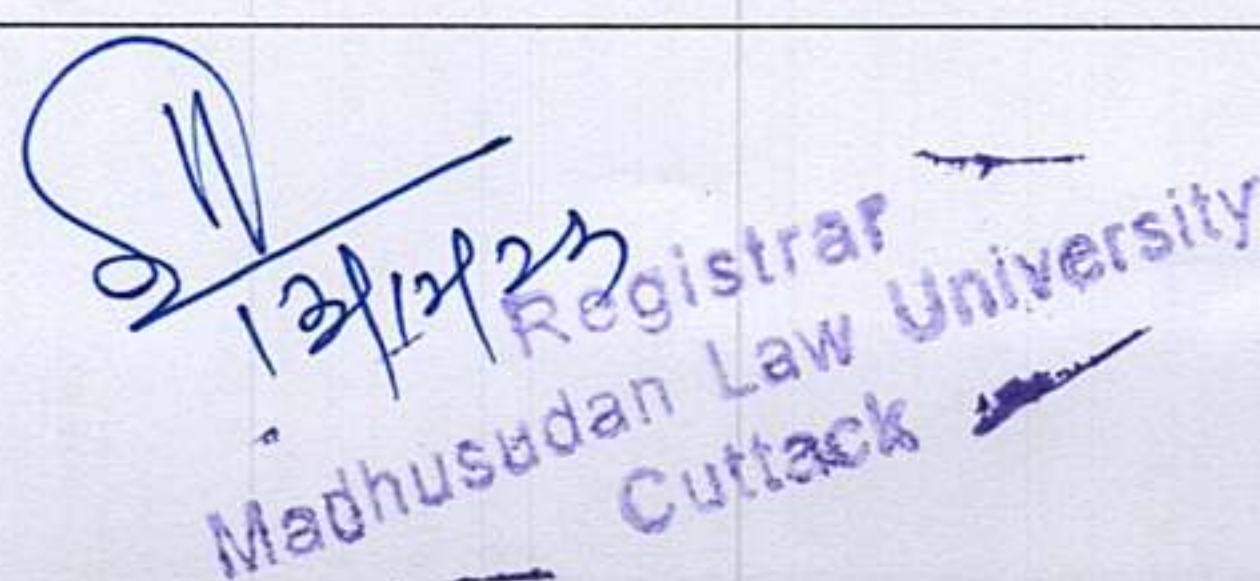 13/12/23
Registrar
Madhusudan Law University
Cuttack